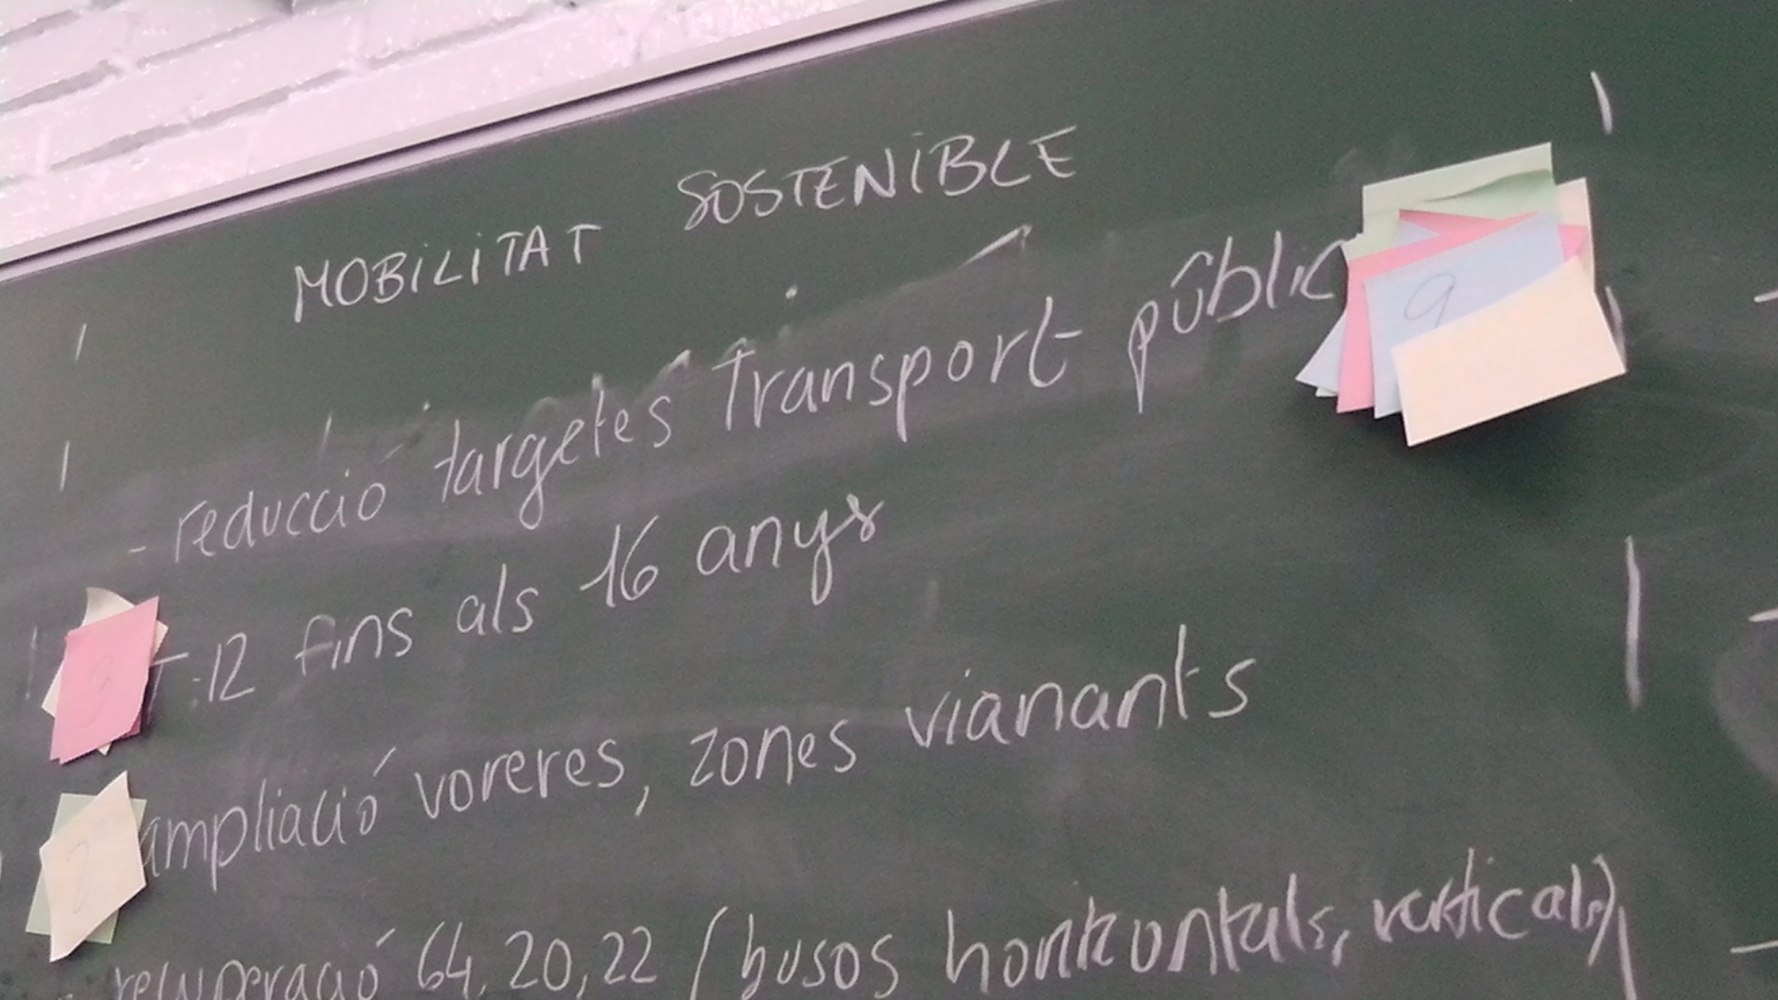 MOBILITAT SOSTENIBLE
- reducció targetes Transport públic
9
T-12 fins als 16 anys
3
ampliació voreres, zones vianants
recuperació 64, 20, 22 (busos horitzontals, verticals)